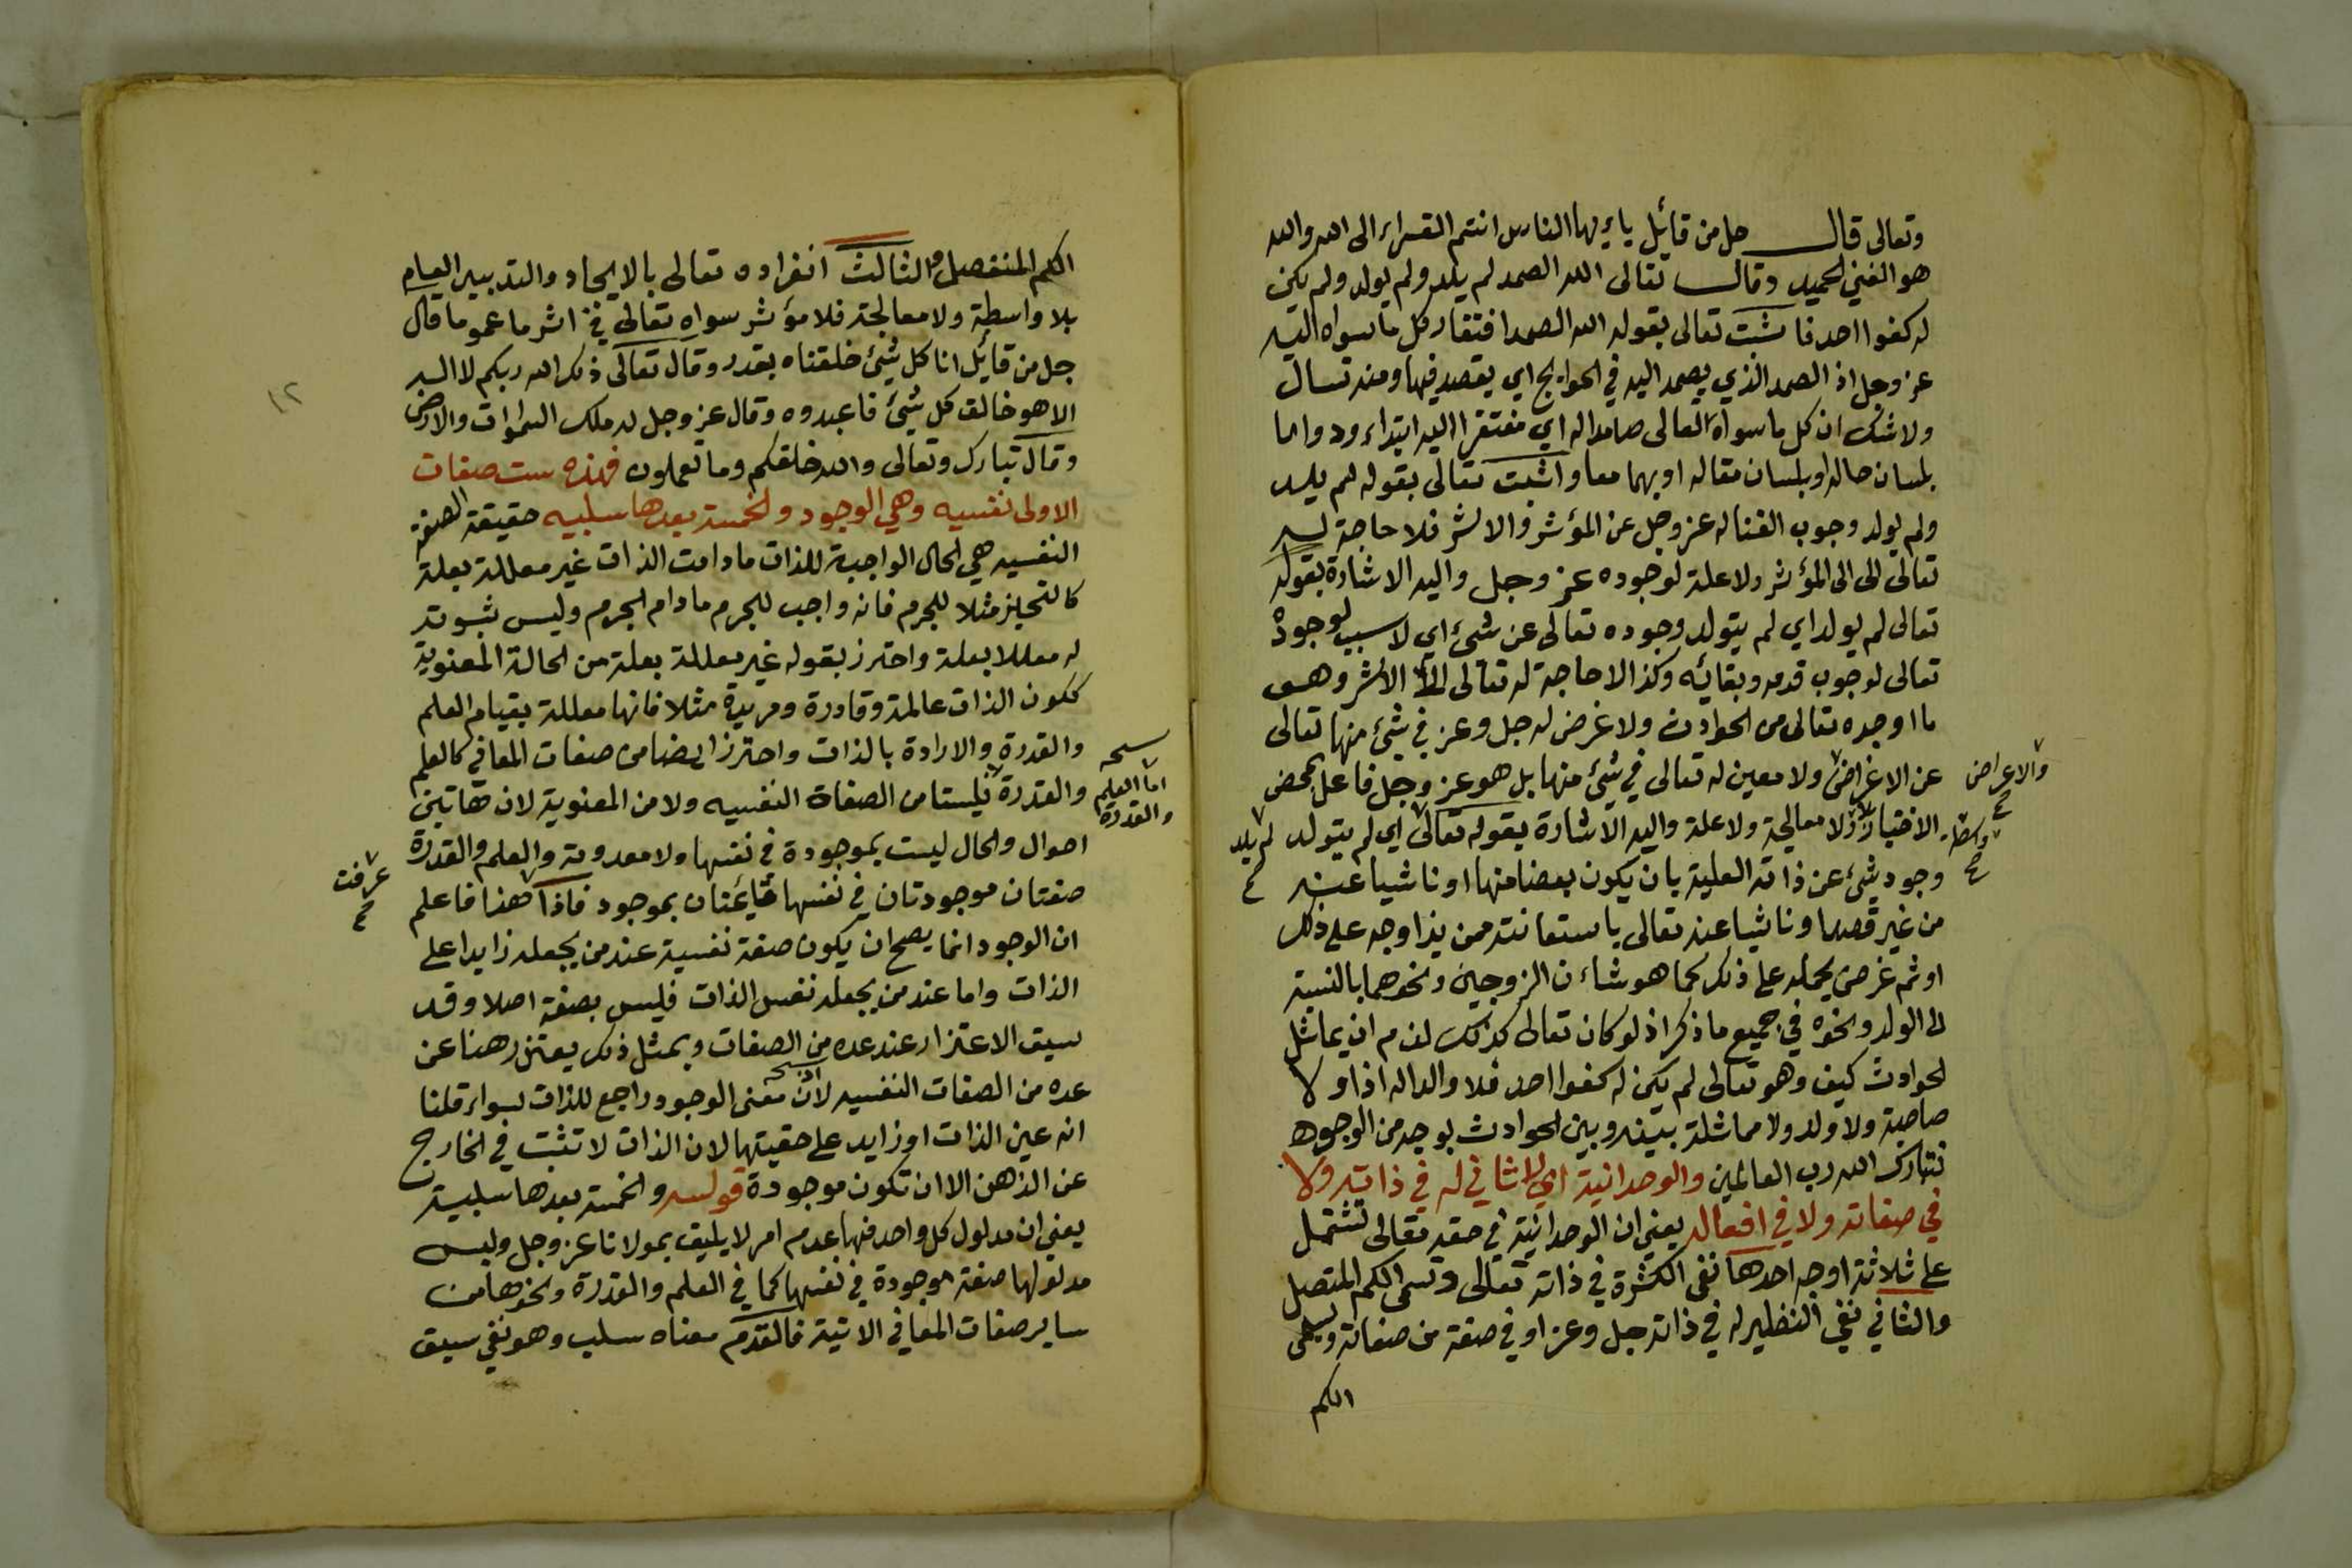 وتعالى قال جل من قائل يايها الناس انتم الفقراء الى الله والله
هو الغني الحميد وقال تعالى الله الصمد لم يلد ولم يولد ولم يكن
له كفوا احد فاثبت تعالى بقوله الله الصمد افتقار كل ما سواه اليه
عز وجل اذ الصمد الذي يصمد اليه في الحوايج اي يقصد فيها ومنه تسال
ولا شك ان كل ما سواه تعالى صامدا له اي مفتقرا اليه ابتداء ودواما
بلسان حاله او بلسان مقاله او بهما معا واثبت تعالى بقوله لم يلد
ولم يولد وجوب الغنا له عز وجل عن المؤثر والاثر فلا حاجة له
تعالى الى الى المؤثر ولا علة لوجوده عز وجل واليه الاشارة بقوله
تعالى لم يولد اي لم يتولد وجوده تعالى عن شئ اي لا سبب لوجوده
تعالى لوجوب قدمه وبقائه وكذا لا حاجة له تعالى الى الاثر وهو
ما اوجده تعالى من الحوادث ولا غرض له جل وعز في شئ منها تعالى
عن الاغراض ولا معين له تعالى في شئ منها بل هو عز وجل فاعل بمحض
والاعراض
صح
الاختيار بلا معالجة ولا علة واليه الاشارة بقوله تعالى اي لم يتولد
واسطة
صح
لم يلد
صح
وجود شئ عن ذاته العلية بان يكون بعضا منها او ناشيا عنه
من غير قصد او ناشيا عنه تعالى باستعانته ممن يزاوجه على ذلك
او ثم غرض يحمله على ذلك كما هو شاءن الزوجين ونحوهما بالنسبة
الى الولد ونحوه في جميع ما ذكر اذ لو كان تعالى كذلك لزم ان يماثل
الحوادث كيف وهو تعالى لم يكن له كفوا احد فلا والد له اذا ولا
صاحبة ولا ولد ولا مماثلة بينه وبين الحوادث بوجه من الوجوه
فتبارك الله رب العالمين والوحدانية اي لا ثاني له في ذاته ولا
في صفاته ولا في افعاله يعني ان الوحدانية في حقه تعالى تشتمل
على ثلاثة اوجه احدها نفى الكثرة في ذاته تعالى وتسمى الكم المتصل
والثاني نفي النظير له في ذاته جل وعز او في صفة من صفاته ويسمى
الكم
الكم المنفصل والثالث انفراده تعالى بالايجاد والتدبير العام
بلا واسطة ولا معالجة فلا مؤثر سواه تعالى في اثر ما عموما قال
جل من قائل انا كل شئ خلقناه بقدر وقال تعالى ذلكم الله ربكم لا اله
١٢
الا هو خالق كل شئ فاعبدوه وقال عز وجل له ملك السموات والارض
وقال تبارك وتعالى والله خلقكم وما تعملون فهذه ست صفات
الاولى نفسيه وهي الوجود والخمسة بعدها سلبيه حقيقة الصفة
النفسيه هي الحال الواجبة للذات ما دامت الذات غير معللة بعلة
كالتحيز مثلا للجرم فانه واجب للجرم ما دام الجرم وليس ثبوته
له معللا بعلة واحترز بقوله غير معللة بعلة من الحالة المعنوية
ككون الذات عالمة وقادرة ومريدة مثلا فانها معللة بقيام العلم
والقدرة والارادة بالذات واحترز ايضا من صفات المعاني كالعلم
نسخه
اما العلم
والقدرة
والقدرة فليستا من الصفات النفسيه ولا من المعنوية لان هاتين
احوال والحال ليست بموجودة في نفسها ولا معدومة والعلم والقدرة
صفتان موجودتان في نفسها قائمتان بموجود فاذا هذا فاعلم
عرفت
صح
ان الوجود انما يصح ان يكون صفة نفسية عند من يجعله زايدا على
الذات واما عند من يجعله نفس الذات فليس بصفة اصلا وقد
سبق الاعتزار عند عده من الصفات وبمثل ذلك يعتذر هنا عن
عده من الصفات النفسيه لان معنى الوجود راجع للذات سواء قلنا
انه عين الذات او زايد على حقيتها لان الذات لا تثبت في الخارج
عن الذهن الا ان تكون موجودة قوله والخمسة بعدها سلبية
يعني ان مدلول كل واحد منها عدم امر لا يليق بمولانا عز وجل وليس
مدلولها صفة موجودة في نفسها كما في العلم والقدرة ونحوها من
ساير صفات المعاني الاتية فالقدم معناه سلب وهو نفي سبق